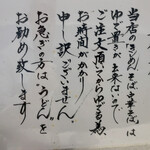 当店の「きしめん、そば、華そば」は
ゆで置きが出来ないので
ご注文頂いてからゆでる為
お時間がかかり
申し訳ございません。
お急ぎの方は、うどんを
お勧め致します